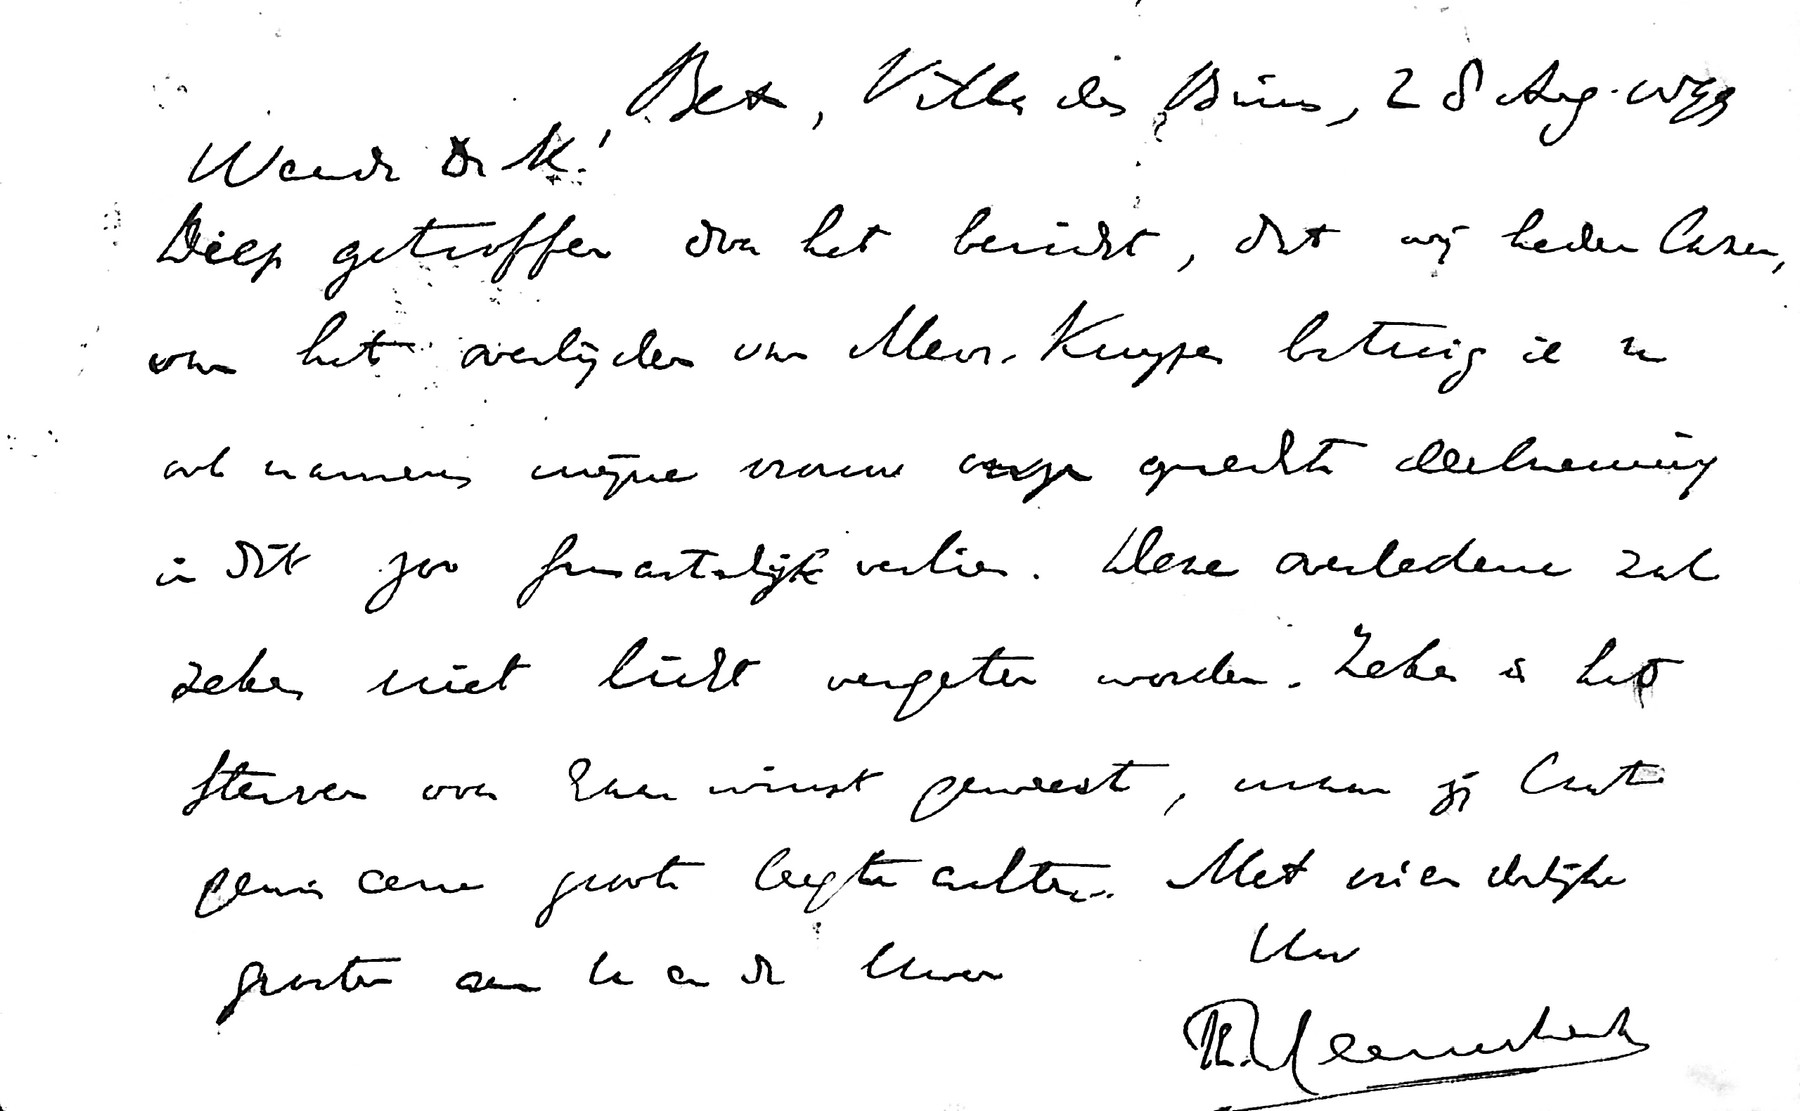 Bex, Villa des Bains, 28 Aug. 1899
Waarde Dr K!
Diep getroffen door het bericht, dat wij heden lazen,
van het overlijden van Mevr. Kuyper betuig ik u
ook namens mijne vrouw onze oprechte deelneming
in dit zoo smartelijk verlies. Deze overledene zal
zeker niet licht vergeten worden. Zeker is het
sterven voor haar winst geweest, maar zij laat
gewis eene groote leegte achter. Met vriendelijke
groeten aan U en de Uwen
Uw
Th. Heemskerk